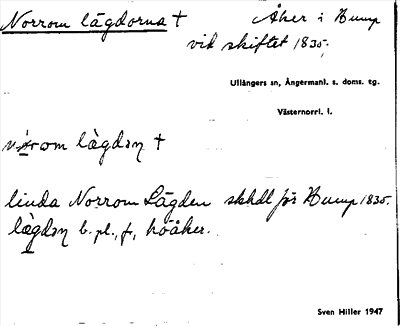 Norrom lägdorna † Åker i Hump
vid skiftet 1835.
Ullångers sn, Ångermanl. s. doms. tg.
Västernorrl. l.
nòrom lægdən †
linda Norrom Lägden skhdl för Hump 1835.
lægdən b. pl., f., höåker.
Sven Hiller 1947